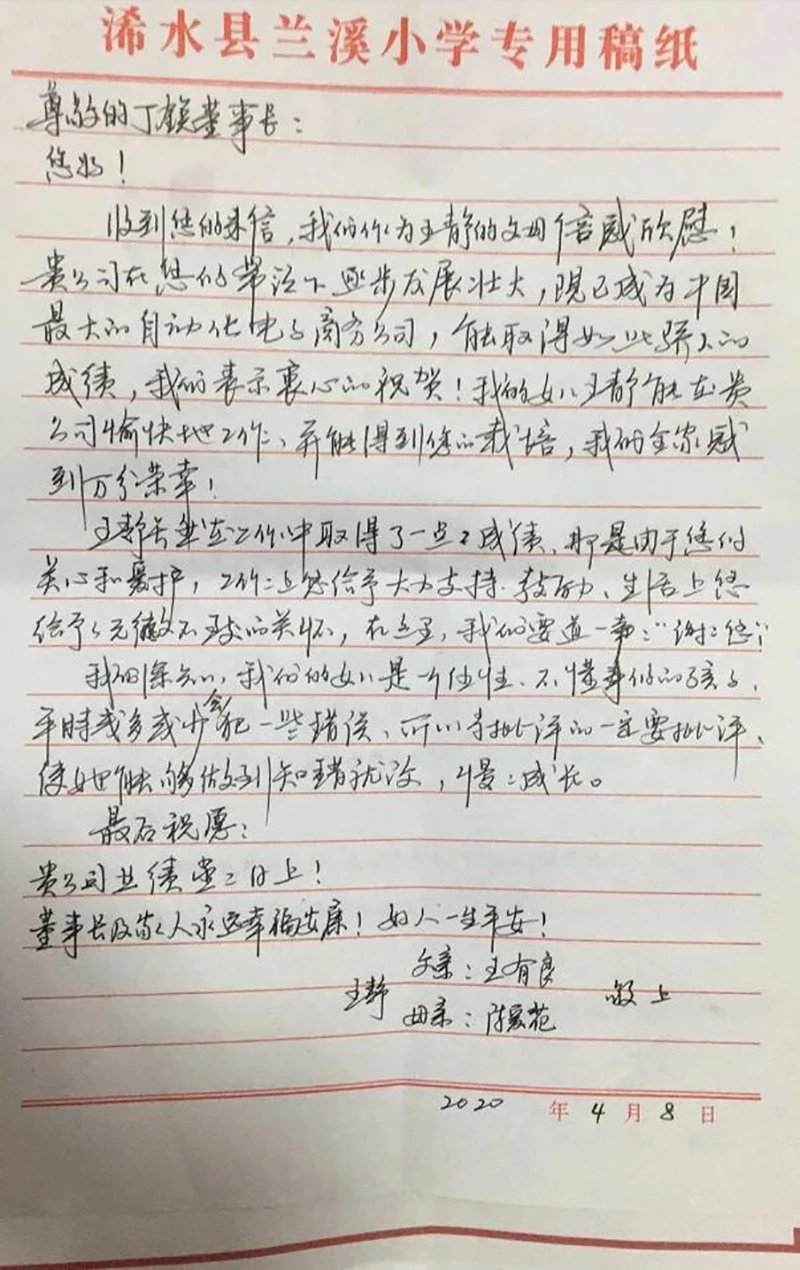 浠水县兰溪小学专用稿纸
尊敬的丁董事长：
您好！
收到您的来信，我们作为王静的父母倍感欣慰！
贵公司在您的带领下逐步发展壮大，现已成为中国
最大的自动化电子商务公司，能取得如此骄人的
成绩，我们表示衷心的祝贺！我的女儿王静能在贵
公司愉快地工作、并能得到您的栽培，我们全家感
到万分荣幸！
王静虽然在工作中取得了一点点成绩、那是由于您的
关心和爱护，工作上您给予大力支持、鼓励、生活上您
给予无微不至的关怀，在这里，我们要道一声："谢谢您！"
我们深知，我们的女儿是一个任性、不懂事的孩子、
平时或多或少会犯一些错误、所以该批评的一定要批评、
使她能够做到知错就改，慢慢成长。
最后祝愿：
贵公司业绩蒸蒸日上！
董事长及家人永远幸福安康！好人一生平安！
父亲：王有良
王静 敬上
母亲：陈爱花
2020年4月8日